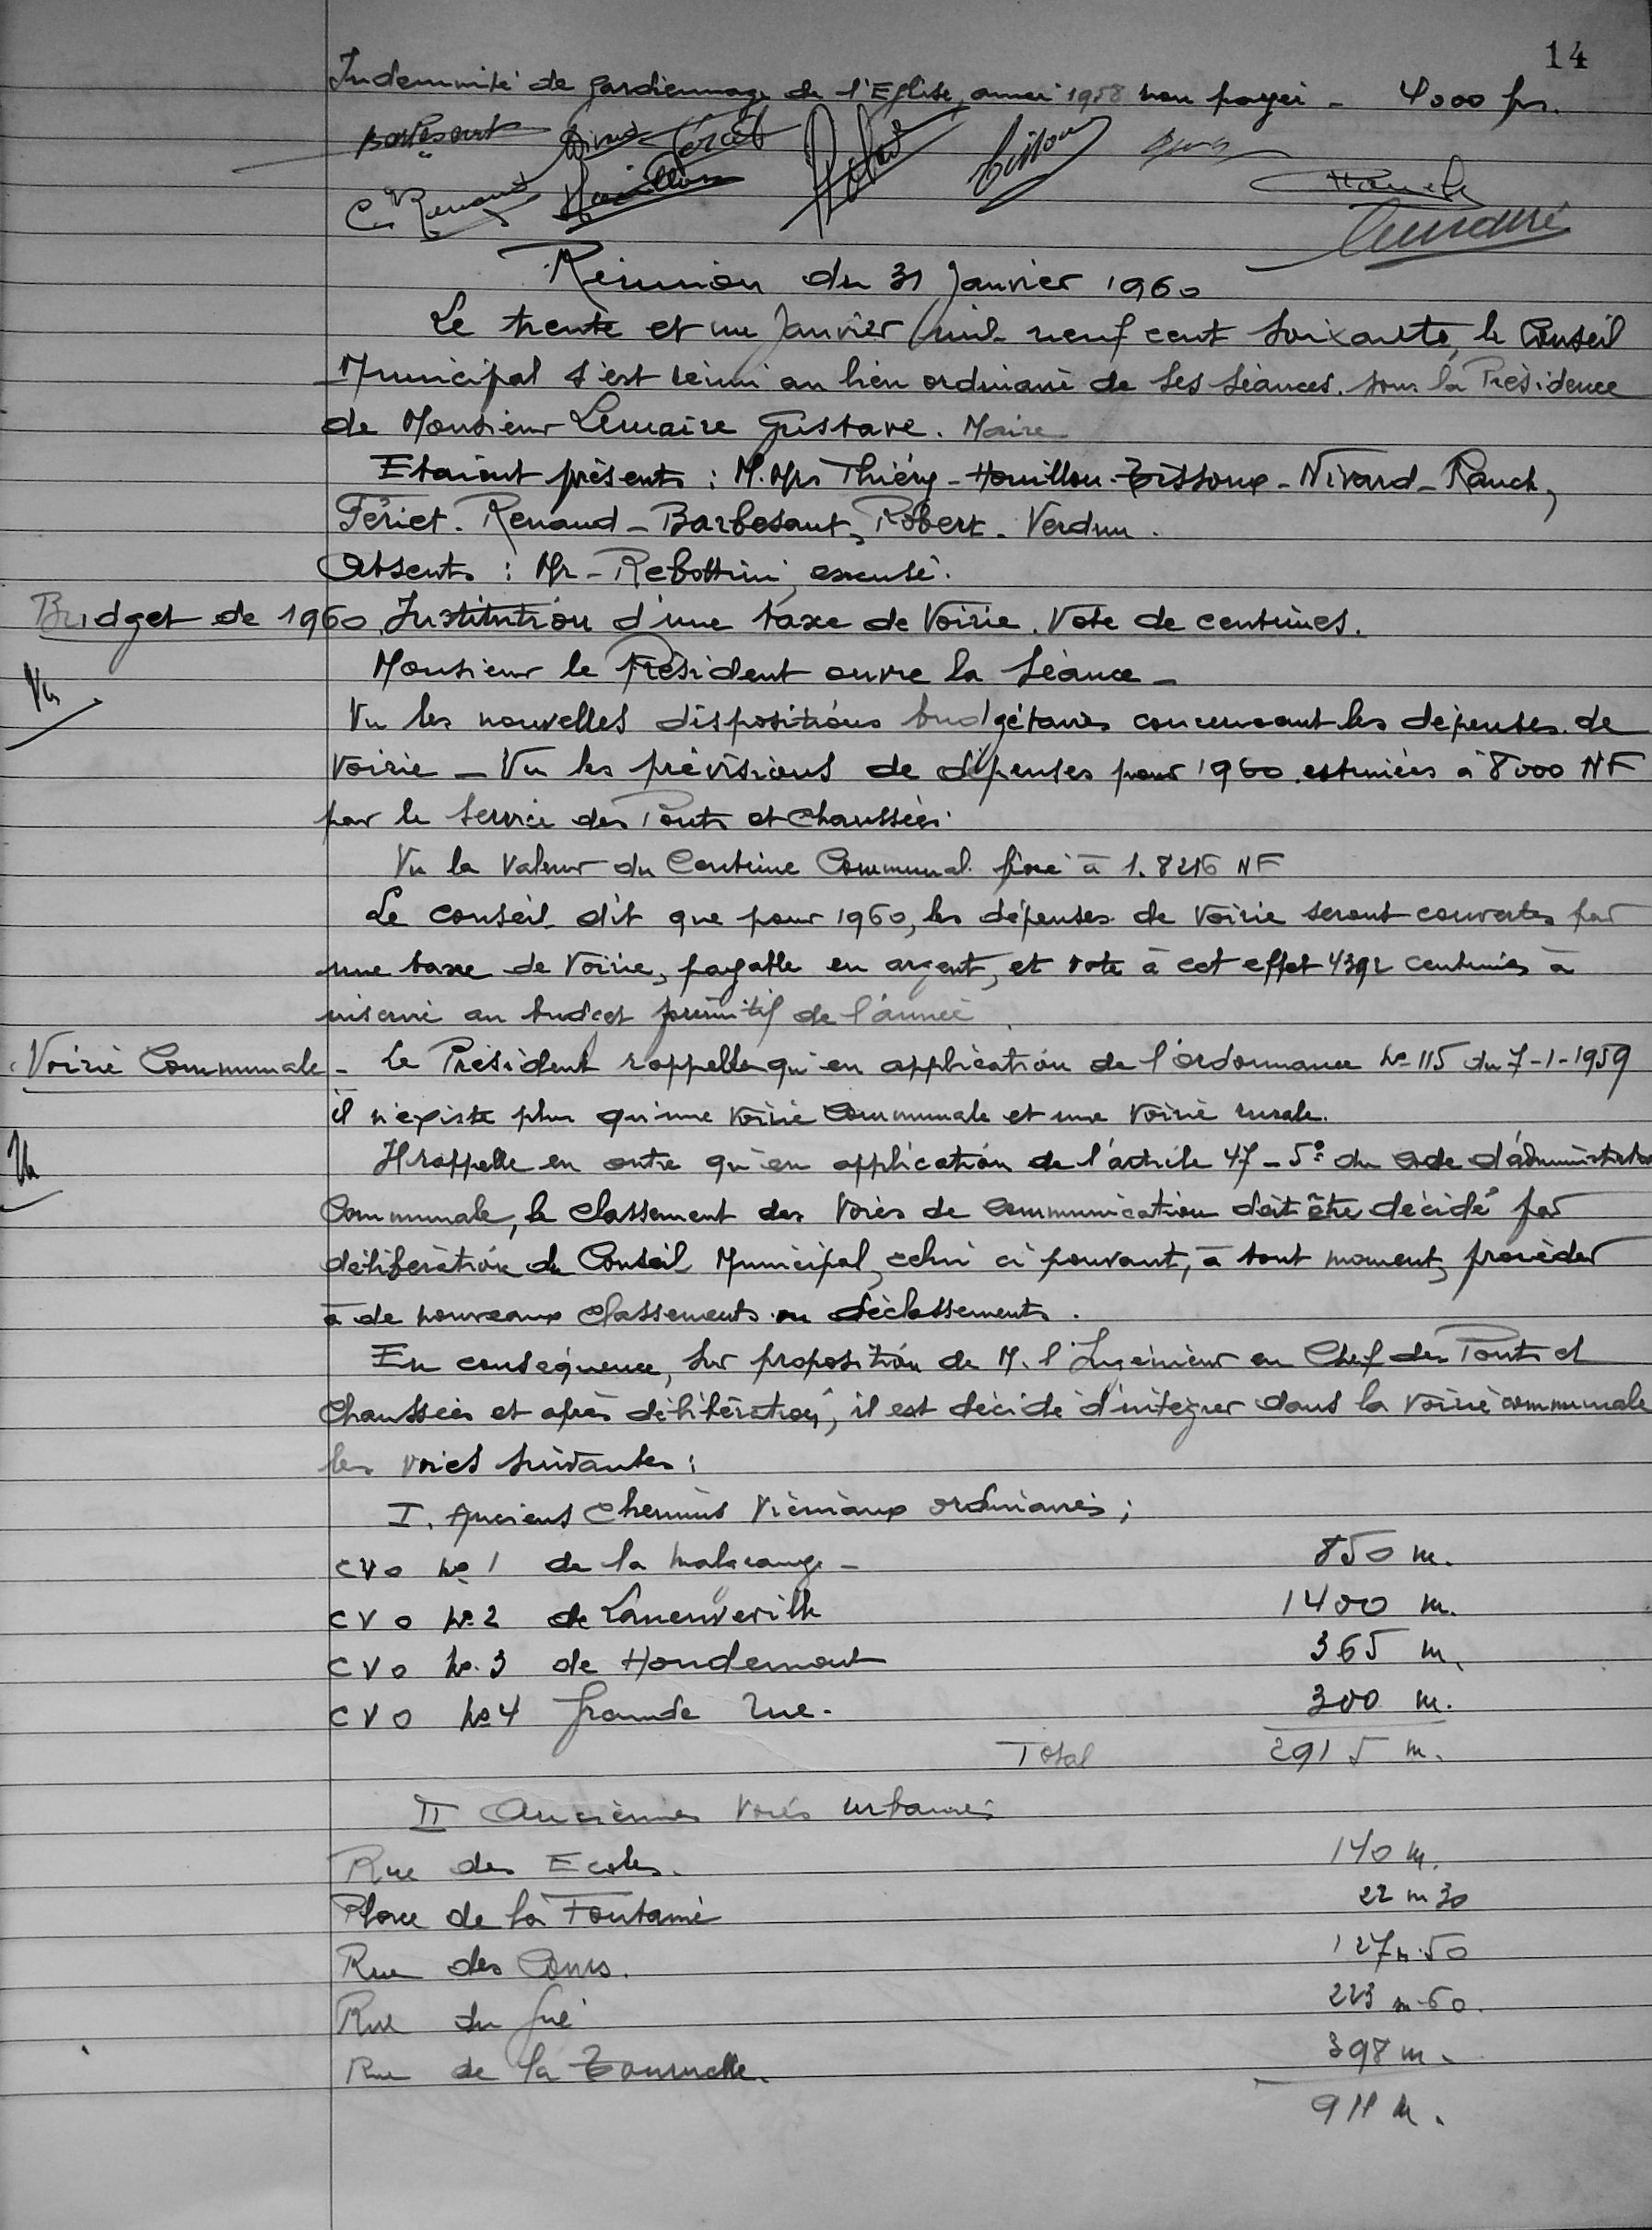 14
Indemnité de gardiennage de l'Eglise, année 1958 non payée - 4000 frs.
Barbesant Nivard Fériet
C. Renaud Houillon Robert Tissoux
Rauch
Lemaire
Réunion du 31 Janvier 1960
Le trente et un Janvier mil neuf cent soixante, le Conseil
Municipal s'est réuni au lieu ordinaire de ses séances, sous la Présidence
de Monsieur Lemaire Gustave. Maire
Etaient présents : M. Mrs Thiéry - Houillon - Tissoux - Nivard - Rauch,
Fériet - Renaud - Barbesant, Robert - Verdun.
Absents : Mr - Rebottini, excusé.
Budget de 1960. Institution d'une taxe de Voirie. Vote de centimes.
Monsieur le Président ouvre la séance -
Vu
Vu les nouvelles dispositions budgétaires concernant les dépenses de
Voirie - Vu les prévisions de dépenses pour 1960 estimées à 8000 NF
par le service des Ponts et Chaussées.
Vu la valeur du Centime Communal fixé à 1.8216 NF
Le conseil dit que pour 1960, les dépenses de voirie seront couvertes par
une taxe de Voirie, payable en argent, et vote à cet effet 4392 centimes à
inscrire au budget primitif de l'année.
Voirie Communale - Le Président rappelle qu'en application de l'ordonnance N° 115 du 7-1-1959
il n'existe plus qu'une voirie communale et une voirie rurale.
Vu
Il rappelle en outre qu'en application de l'article 47-5° du Code d'administration
Communale, le classement des voies de communication doit être décidé par
délibération du Conseil Municipal, celui ci pouvant, à tout moment, procéder
à de nouveaux classements ou déclassements.
En conséquence, sur proposition de M. l'Ingénieur en Chef des Ponts et
Chaussées et après délibération, il est décidé d'intégrer dans la voirie communale
les voies suivantes :
I. Anciens Chemins Vicinaux ordinaires ;
CVO N° 1 de la Malgrange - 850 m.
CVO N° 2 de Laneuveville 1400 m.
CVO N° 3 de Houdemont 365 m.
CVO N° 4 Grande Rue. 300 m.
Total 2915 m.
II Anciennes voies urbaines
Rue des Ecoles. 140 m.
Place de la Fontaine 22 m 30
Rue des Cours. 127 m. 50
Rue du Gué 223 m. 60.
Rue de la Tournelle. 398 m.
911 m.